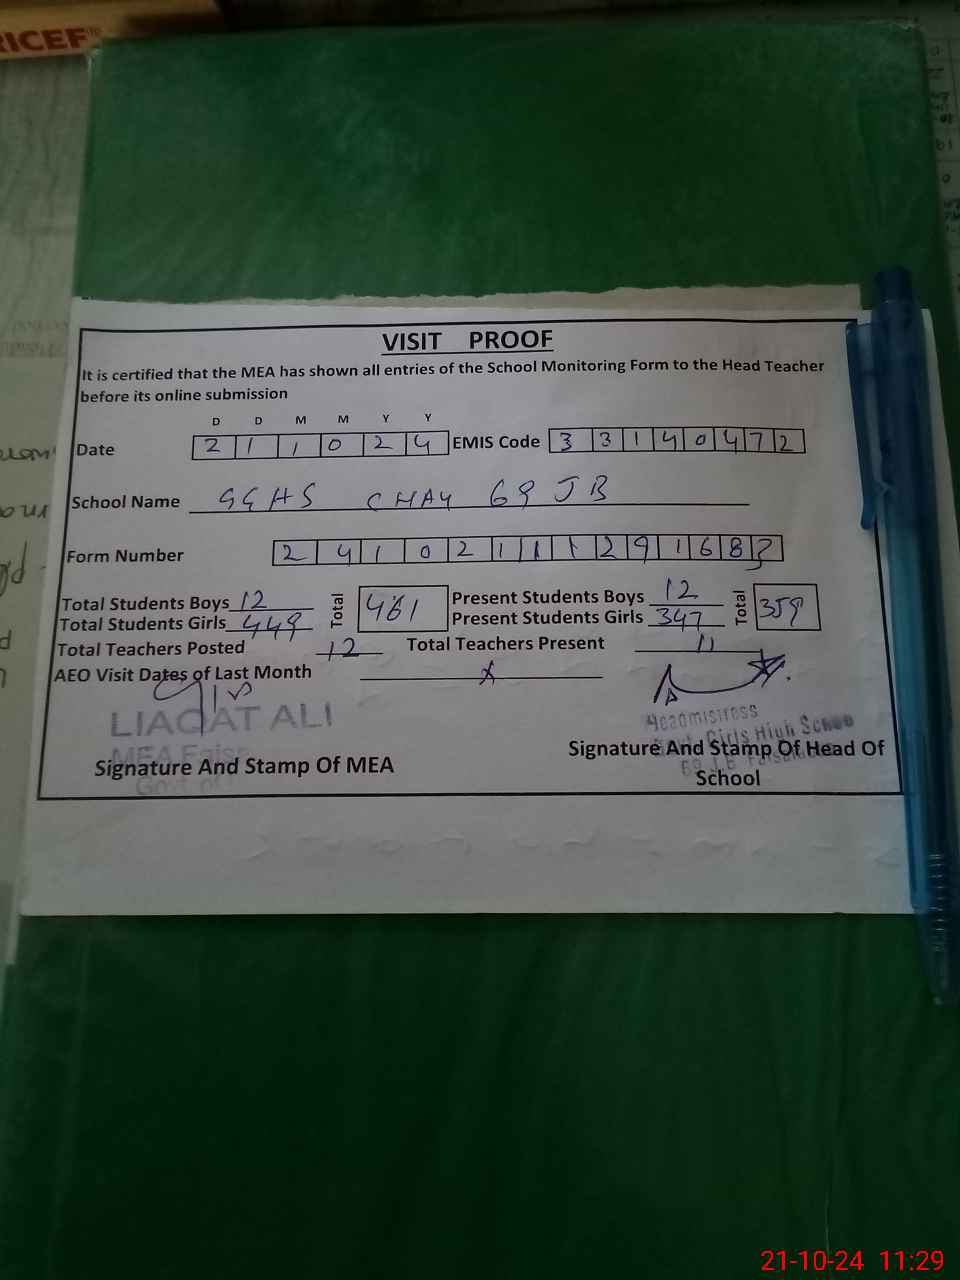 RICEF
VISIT PROOF
It is certified that the MEA has shown all entries of the School Monitoring Form to the Head Teacher
before its online submission
D D M M Y Y
Date 2 1 1 0 2 4 EMIS Code 3 3 1 4 0 4 7 2
School Name GGHS CHAK 69 JB
Form Number 2 4 1 0 2 1 1 1 2 9 1 6 8
Total Students Boys 12 Total 461 Present Students Boys 12 Total 359
Total Students Girls 449 Present Students Girls 347
Total Teachers Posted 12 Total Teachers Present 11
AEO Visit Dates of Last Month x
LIAQAT ALI
MEA
Govt of
Headmistress
Girls High School
69 J.B
Signature And Stamp Of MEA
Signature And Stamp Of Head Of
School
21-10-24 11:29